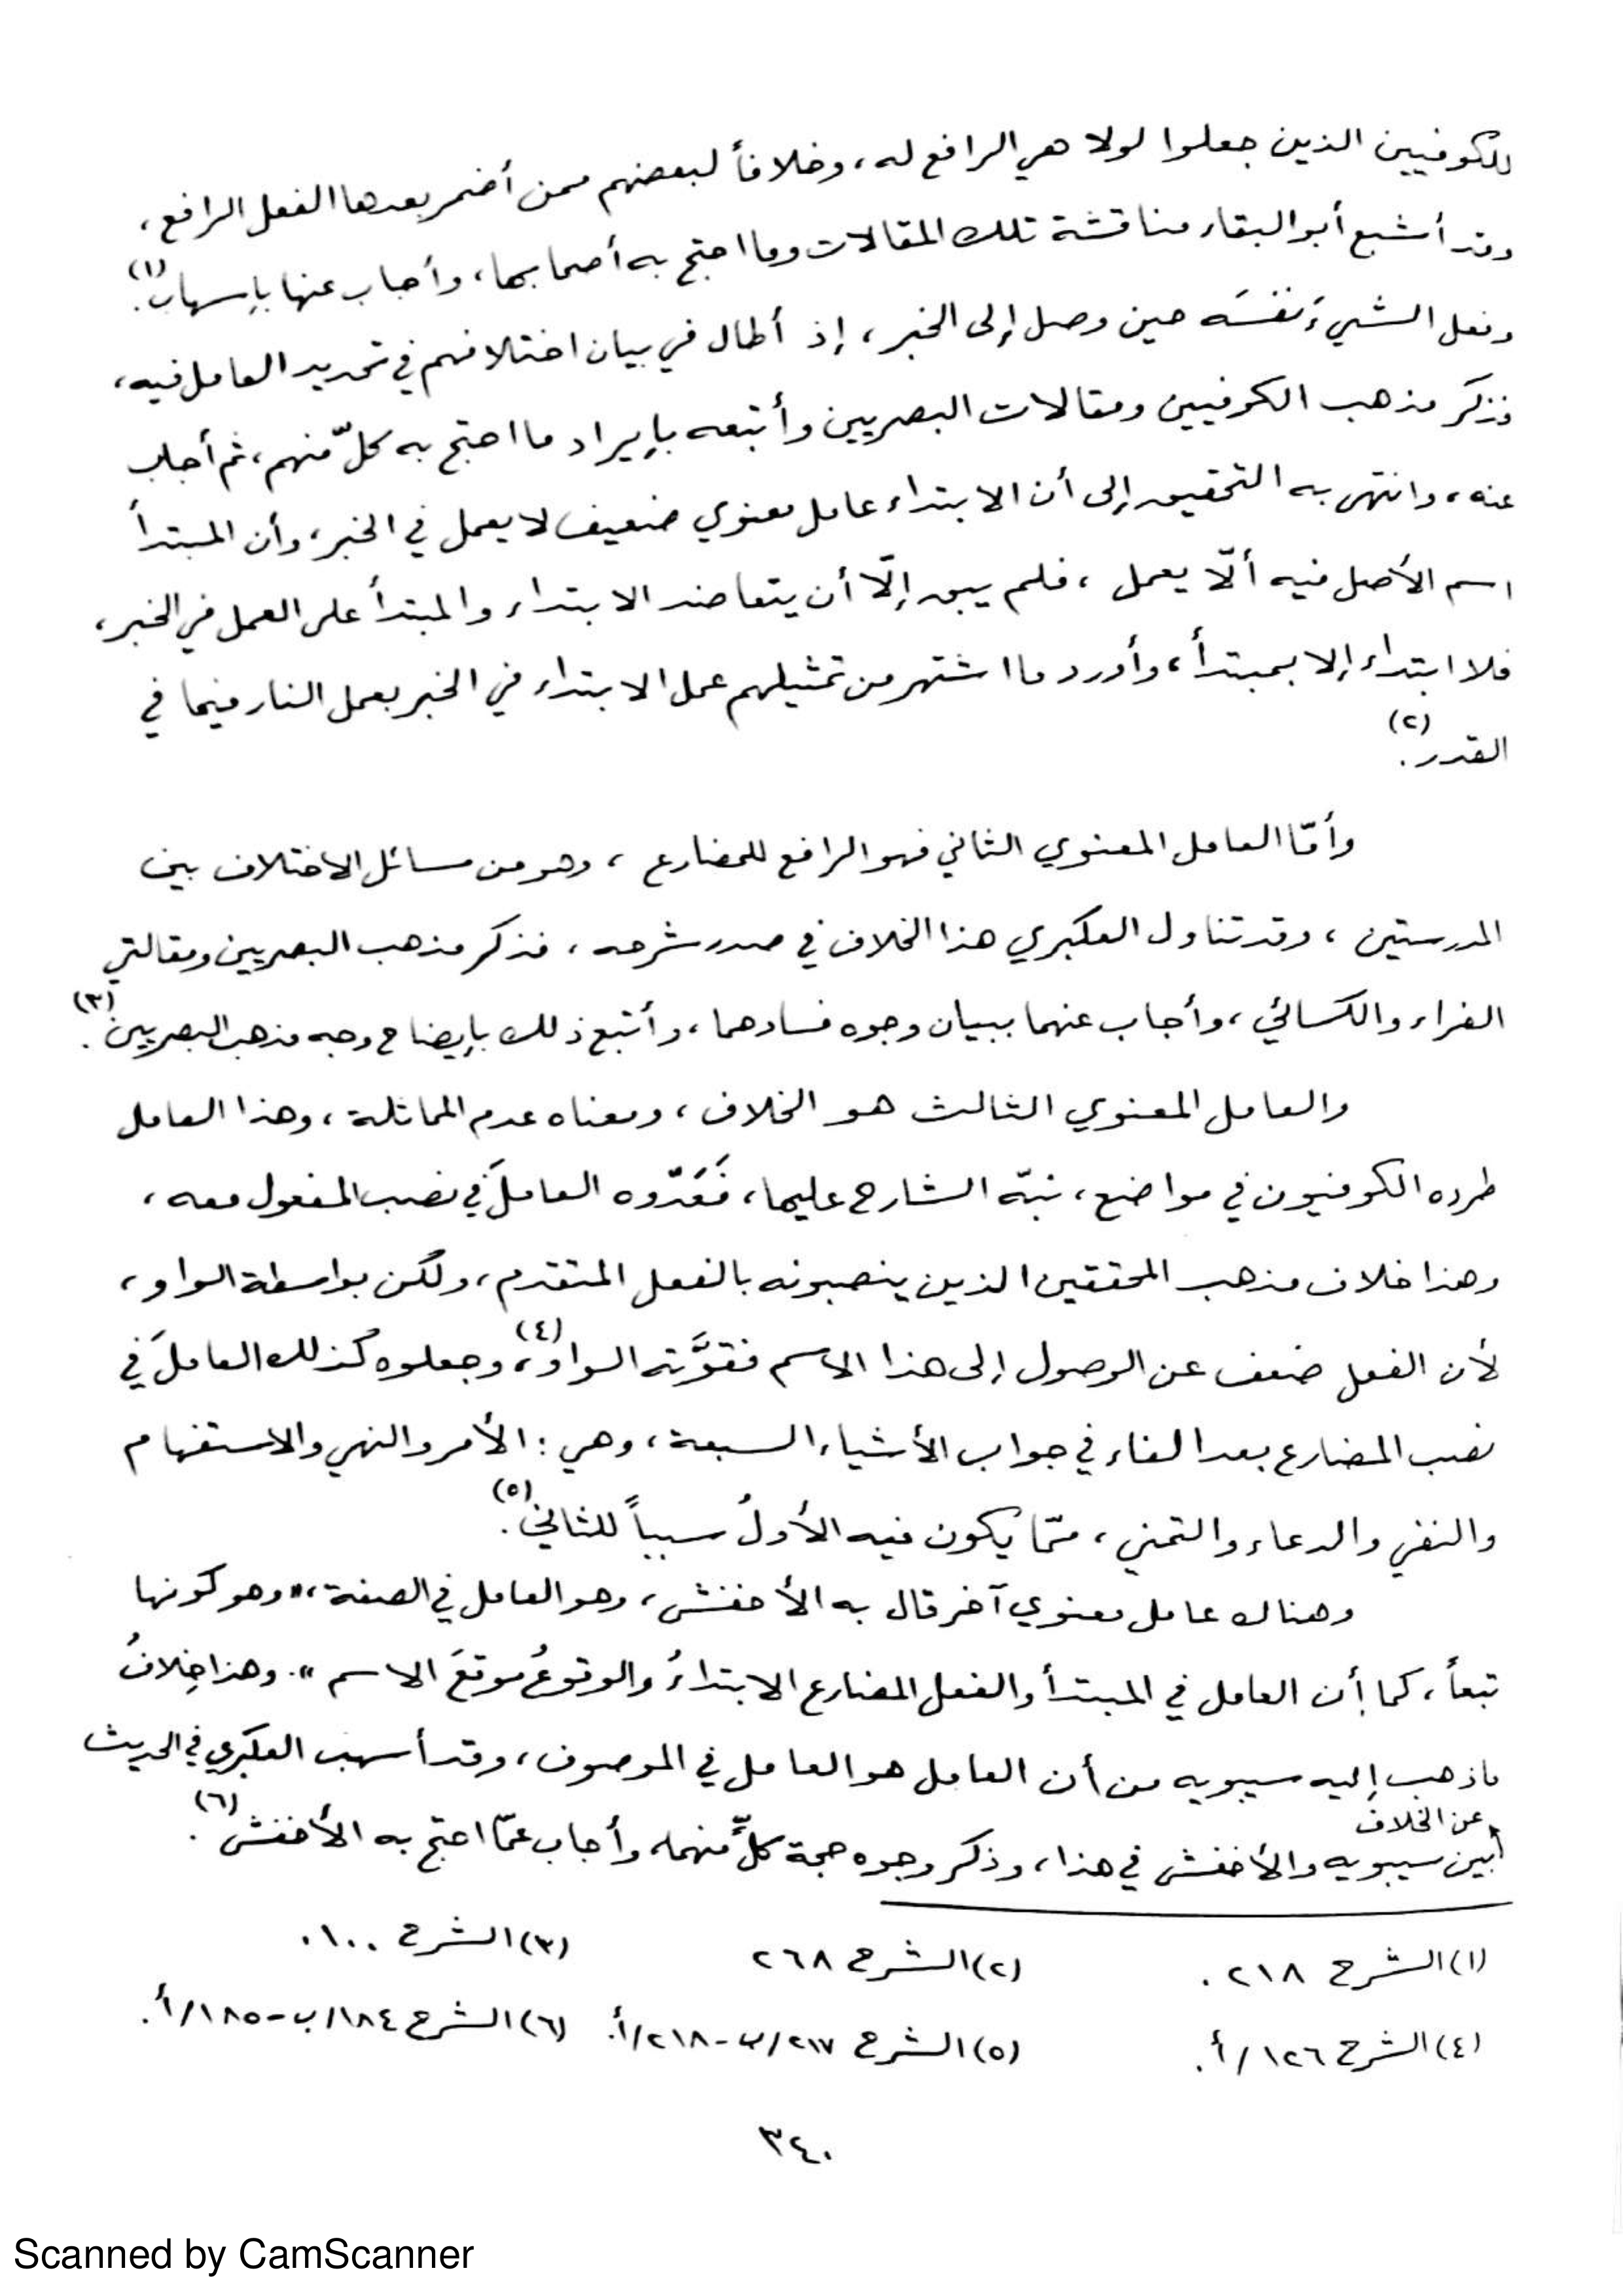 للكوفيين الذين جعلوا لولا هي الرافع له، وخلافاً لبعضهم ممن أضمر بعدها الفعل الرافع،
وقد أشبع أبو البقاء مناقشة تلك المقالات وما احتج به أصحابها، وأجاب عنها بإسهاب(١).
وفعل الشيءَ نفسَه حين وصل إلى الخبر، إذ أطال في بيان اختلافهم في تحديد العامل فيه،
فذكر مذهب الكوفيين ومقالات البصريين وأتبعه بإيراد ما احتج به كلّ منهم، ثم أجاب
عنه، وانتهى به التحقيق إلى أن الابتداء عامل معنوي ضعيف لا يعمل في الخبر، وأن المبتدأ
اسم الأصل فيه ألّا يعمل، فلم يبق إلّا أن يتعاضد الابتداء والمبتدأ على العمل في الخبر،
فلا ابتداء إلا بمبتدأ، وأورد ما اشتهر من تمثيلهم عمل الابتداء في الخبر بعمل النار فيما في
القدر(٢).
وأمّا العامل المعنوي الثاني فهو الرافع للمضارع، وهو من مسائل الاختلاف بين
المدرستين، وقد تناول العكبري هذا الخلاف في صدر شرحه، فذكر مذهب البصريين ومقالتي
الفراء والكسائي، وأجاب عنهما ببيان وجوه فسادهما، وأتبع ذلك بإيضاح وجه مذهب البصريين(٣).
والعامل المعنوي الثالث هو الخلاف، ومعناه عدم المماثلة، وهذا العامل
طرده الكوفيون في مواضع، نبّه الشارح عليها، فَعَدّوه العاملَ في نصب المفعول معه،
وهذا خلاف مذهب المحققين الذين ينصبونه بالفعل المتقدم، ولكن بواسطة الواو،
لأن الفعل ضعف عن الوصول إلى هذا الاسم فقوَّته الواو(٤)، وجعلوه كذلك العاملَ في
نصب المضارع بعد الفاء في جواب الأشياء السبعة، وهي: الأمر والنهي والاستفهام
والنفي والدعاء والتمني، ممّا يكون فيه الأولُ سبباً للثاني(٥).
وهناك عامل معنوي آخر قال به الأخفش، وهو العامل في الصفة، "وهو كونها
تبعاً، كما أن العامل في المبتدأ والفعل المضارع الابتداءُ والوقوعُ موقعَ الاسم". وهذا خِلافُ
ما ذهب إليه سيبويه من أن العامل هو العامل في الموصوف، وقد أسهب العكبري في الحديث
عن الخلاف
بين سيبويه والأخفش في هذا، وذكر وجوه حجة كلٍّ منهما، وأجاب عمّا احتج به الأخفش(٦).
(١) الشرح ٢١٨. (٢) الشرح ٢٦٨ (٣) الشرح ١٠٠.
(٤) الشرح ١٢٦/أ. (٥) الشرح ٢١٧/ب-٢١٨/أ. (٦) الشرح ١٨٤/ب-١٨٥/أ.
٣٤٠
Scanned by CamScanner